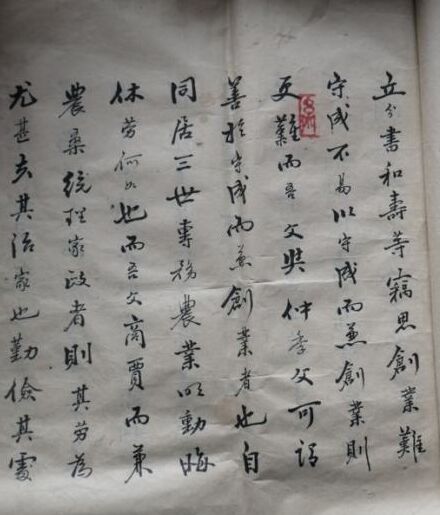 立分書和壽等竊思創業難
守成不易以守成而兼創業則
更難而吾父與仲季父可謂
善於守成而兼創業者也自
同居三世專務農業明動晦
休劳何如也而吾父商賈而兼
農桑統理家政者則其劳為
尤甚矣其治家也勤儉其處